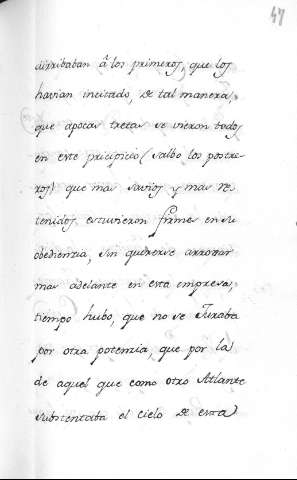 47
dirribaban â los primeros, que los
havian incitado, de tal manera,
que apocas tretas se vieron todos
en este pricipicio (salbo los postre-
ros) que mas savios y mas re-
tenidos estuvieron firmes en su
obedientia, sin quererse arrojar
mas adelante en esta empresa;
tiempo hubo, que no se Juraba
por otra potemzia, que por la
de aquel que como otro Atlante
substentaba el cielo de esta